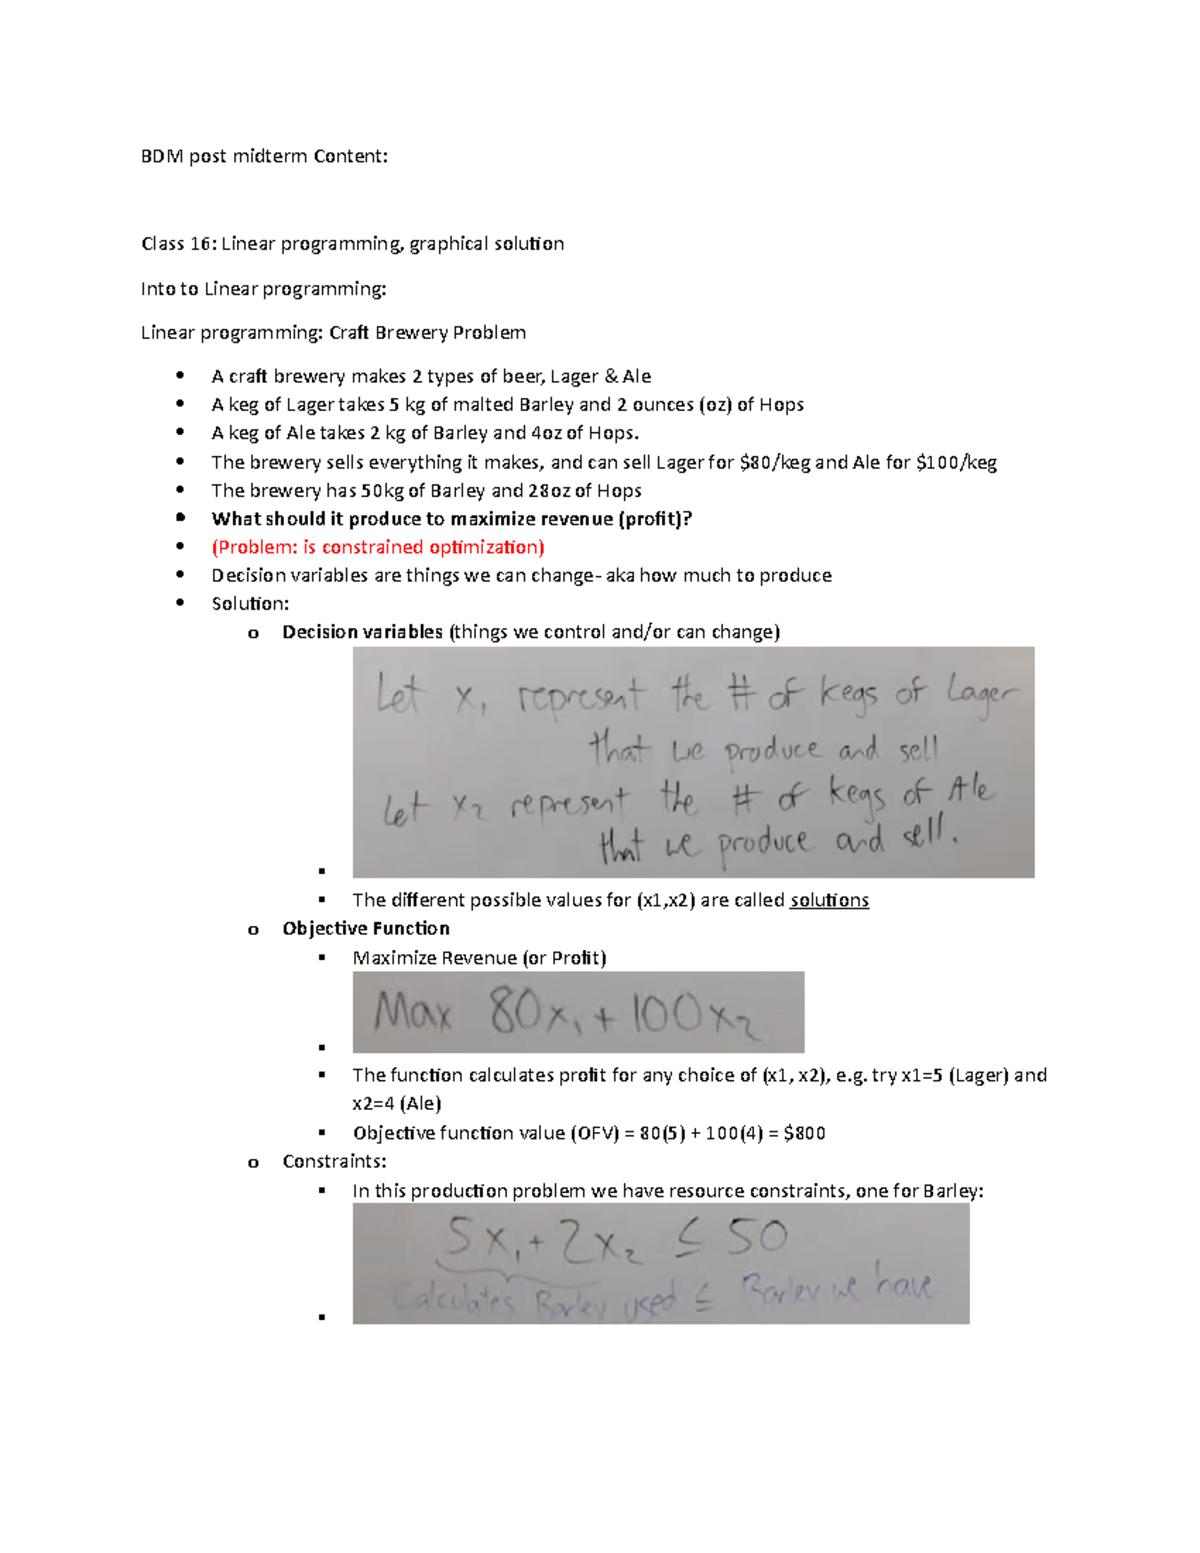 BDM post midterm Content:
Class 16: Linear programming, graphical solution
Into to Linear programming:
Linear programming: Craft Brewery Problem
• A craft brewery makes 2 types of beer, Lager & Ale
• A keg of Lager takes 5 kg of malted Barley and 2 ounces (oz) of Hops
• A keg of Ale takes 2 kg of Barley and 4oz of Hops.
• The brewery sells everything it makes, and can sell Lager for $80/keg and Ale for $100/keg
• The brewery has 50kg of Barley and 28oz of Hops
• What should it produce to maximize revenue (profit)?
• (Problem: is constrained optimization)
• Decision variables are things we can change- aka how much to produce
• Solution:
o Decision variables (things we control and/or can change)
Let x₁ represent the # of kegs of Lager
that we produce and sell
Let x₂ represent the # of kegs of Ale
that we produce and sell.
▪
▪ The different possible values for (x1,x2) are called solutions
o Objective Function
▪ Maximize Revenue (or Profit)
Max 80x₁ + 100x₂
▪
▪ The function calculates profit for any choice of (x1, x2), e.g. try x1=5 (Lager) and
x2=4 (Ale)
▪ Objective function value (OFV) = 80(5) + 100(4) = $800
o Constraints:
▪ In this production problem we have resource constraints, one for Barley:
5x₁ + 2x₂ ≤ 50
Calculates Barley used ≤ Barley we have
▪